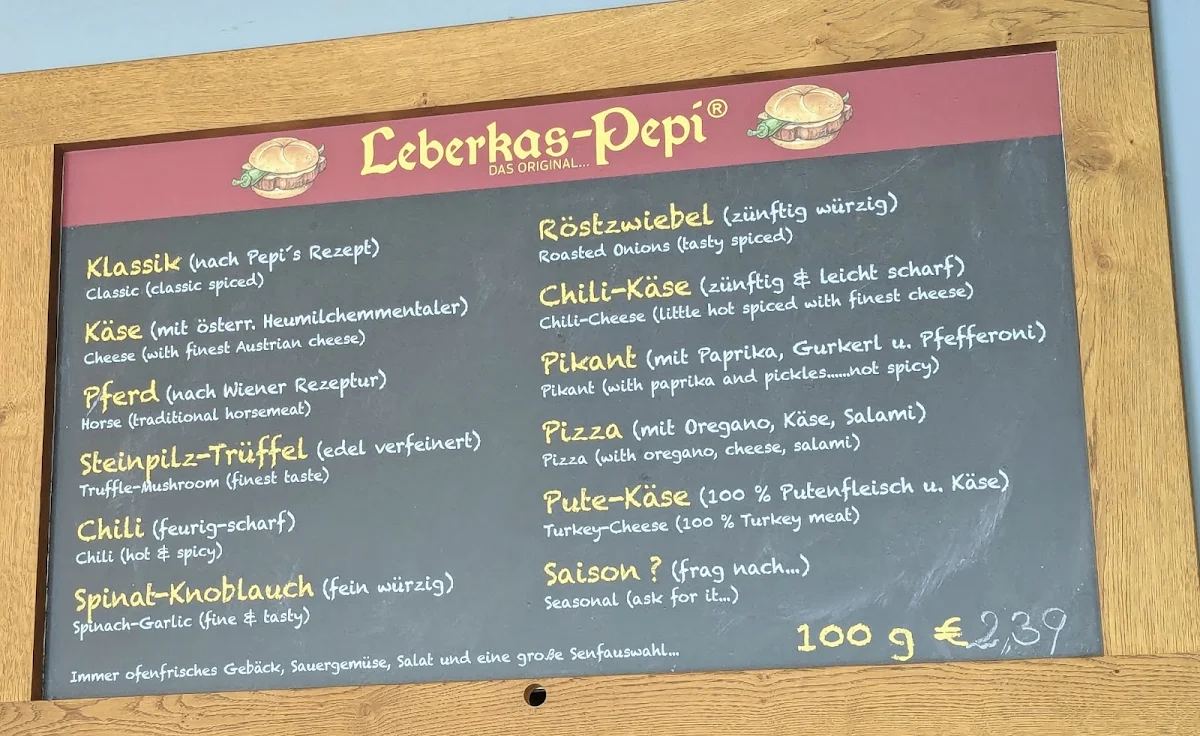 Leberkas-Pepi®
DAS ORIGINAL...
Klassik (nach Pepi´s Rezept)
Classic (classic spiced)
Käse (mit österr. Heumilchemmentaler)
Cheese (with finest Austrian cheese)
Pferd (nach Wiener Rezeptur)
Horse (traditional horsemeat)
Steinpilz-Trüffel (edel verfeinert)
Truffle-Mushroom (finest taste)
Chili (feurig-scharf)
Chili (hot & spicy)
Spinat-Knoblauch (fein würzig)
Spinach-Garlic (fine & tasty)
Röstzwiebel (zünftig würzig)
Roasted Onions (tasty spiced)
Chili-Käse (zünftig & leicht scharf)
Chili-Cheese (little hot spiced with finest cheese)
Pikant (mit Paprika, Gurkerl u. Pfefferoni)
Pikant (with paprika and pickles......not spicy)
Pizza (mit Oregano, Käse, Salami)
Pizza (with oregano, cheese, salami)
Pute-Käse (100 % Putenfleisch u. Käse)
Turkey-Cheese (100 % Turkey meat)
Saison ? (frag nach...)
Seasonal (ask for it...)
100 g € 2,39
Immer ofenfrisches Gebäck, Sauergemüse, Salat und eine große Senfauswahl...